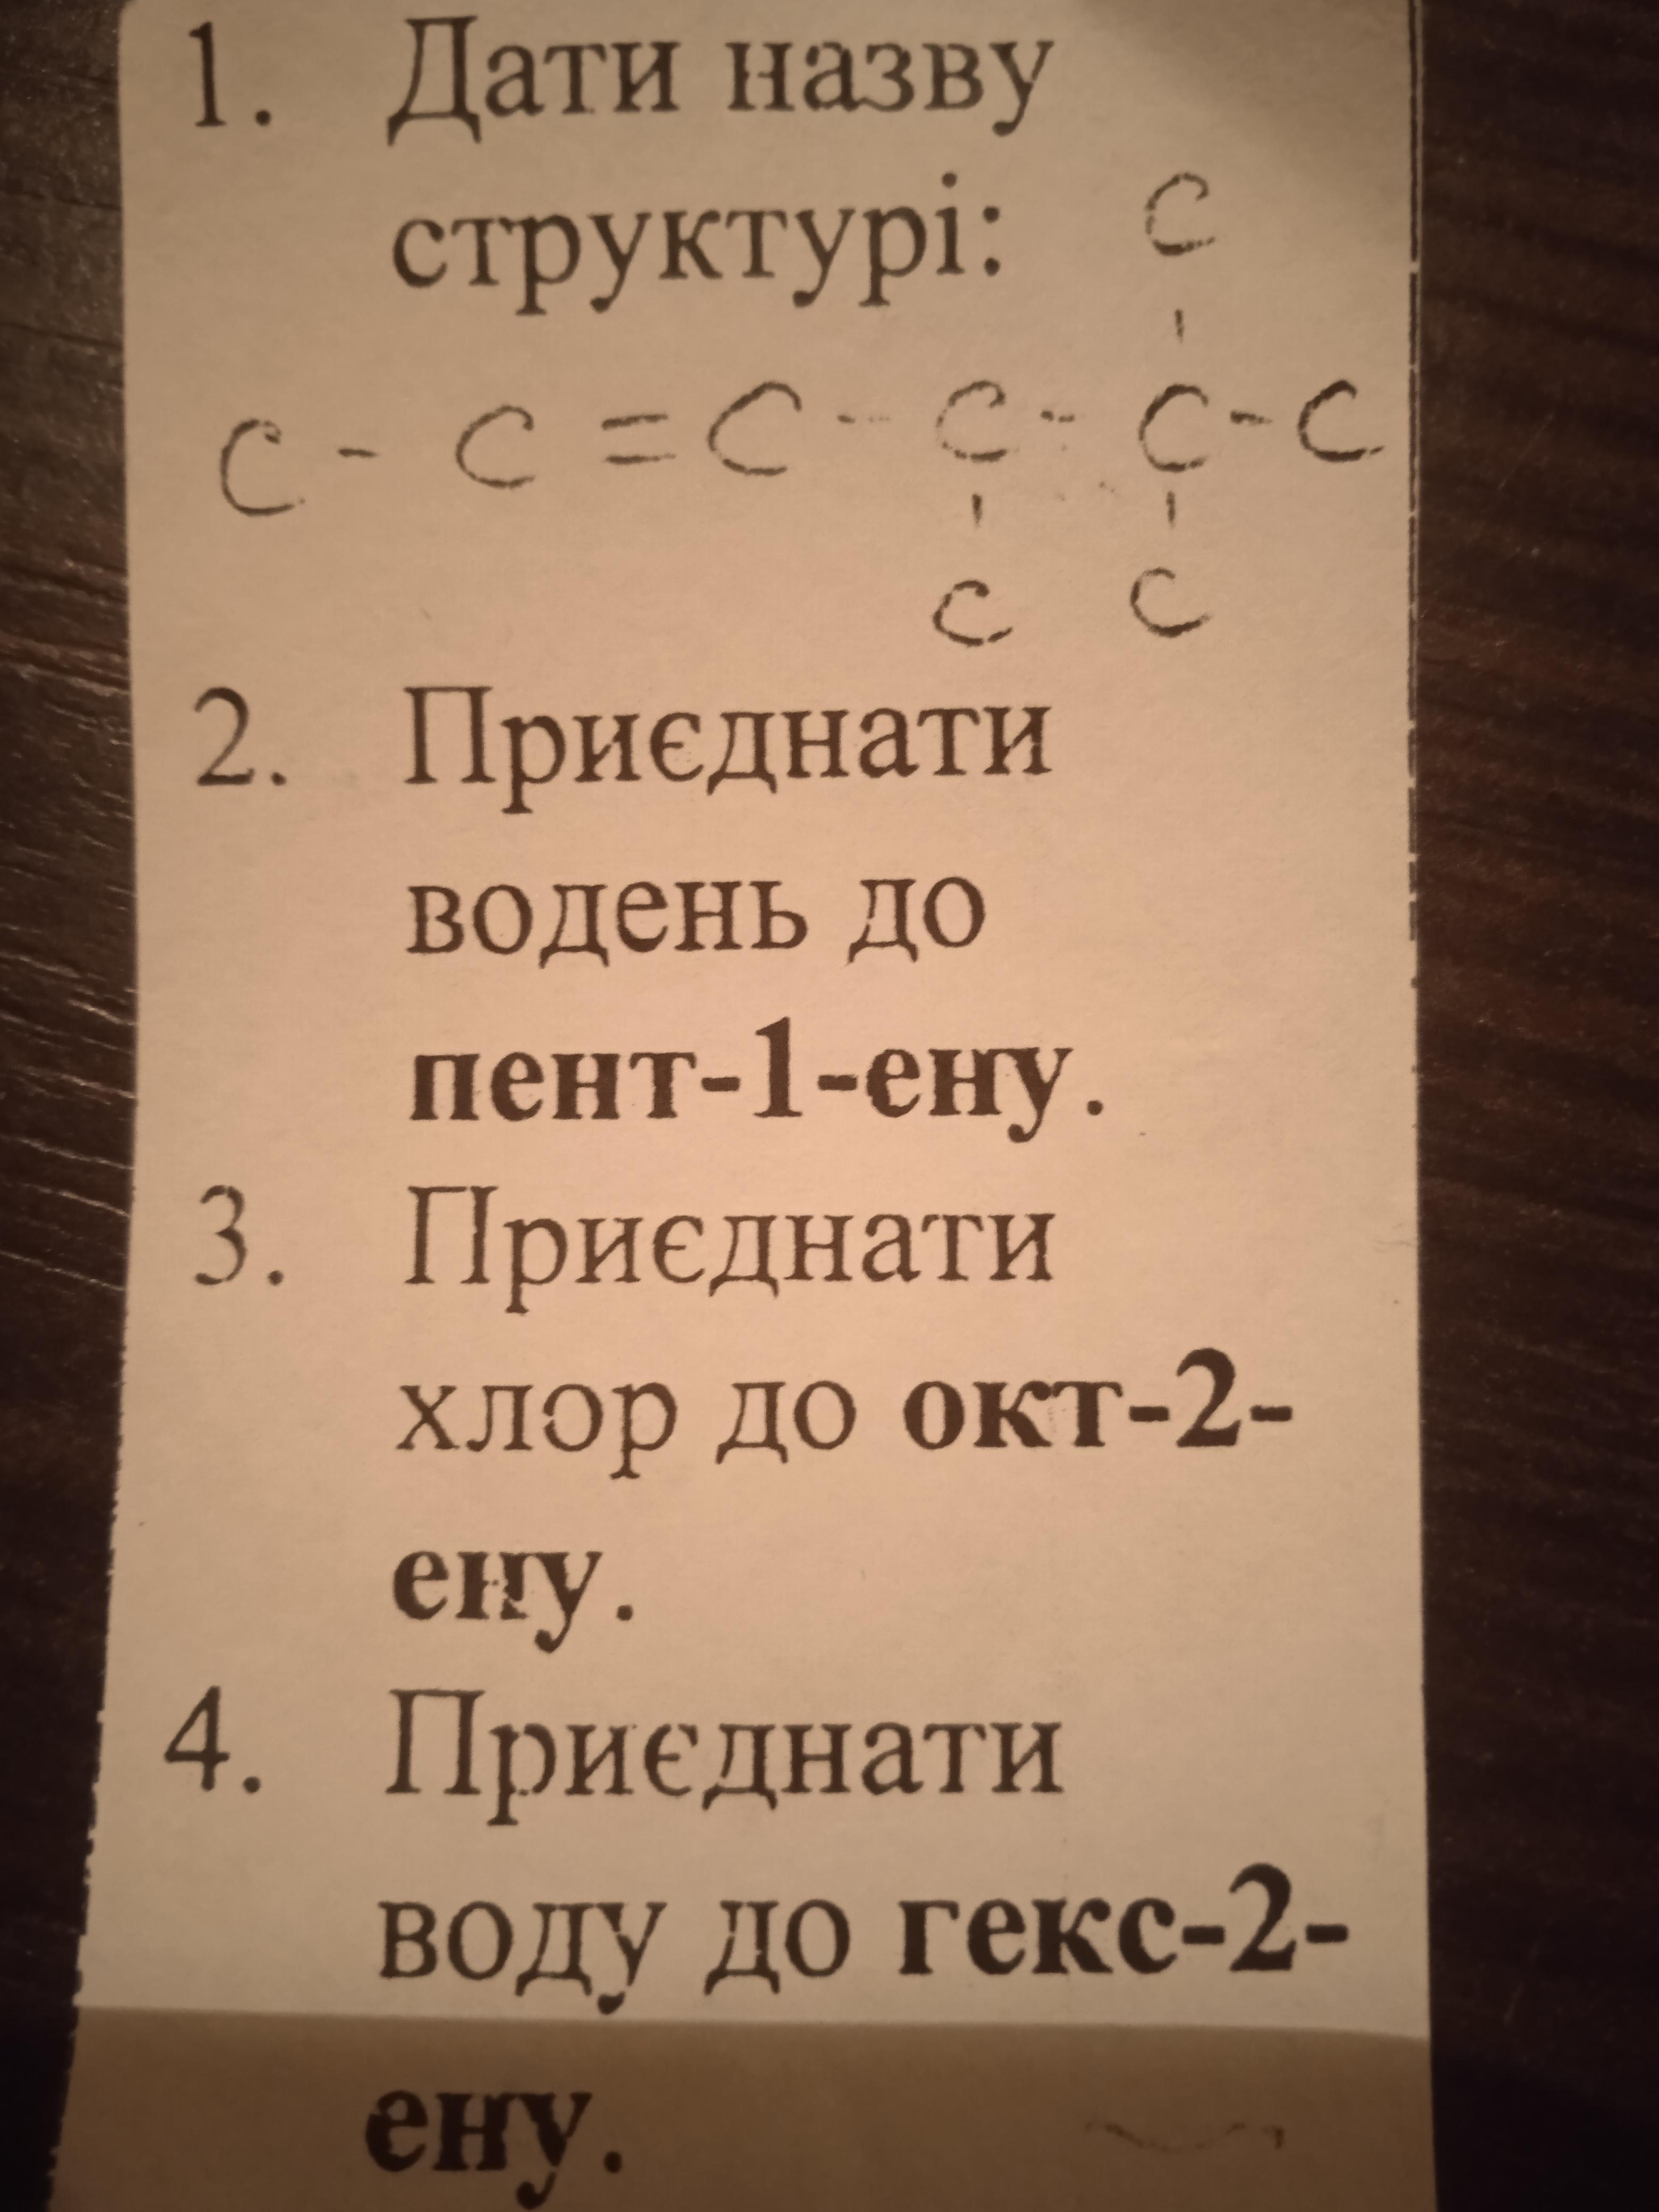 1. Дати назву
структурі:
C
C - C = C - C - C - C
C C
2. Приєднати
водень до
пент-1-ену.
3. Приєднати
хлор до окт-2-
ену.
4. Приєднати
воду до гекс-2-
ену.